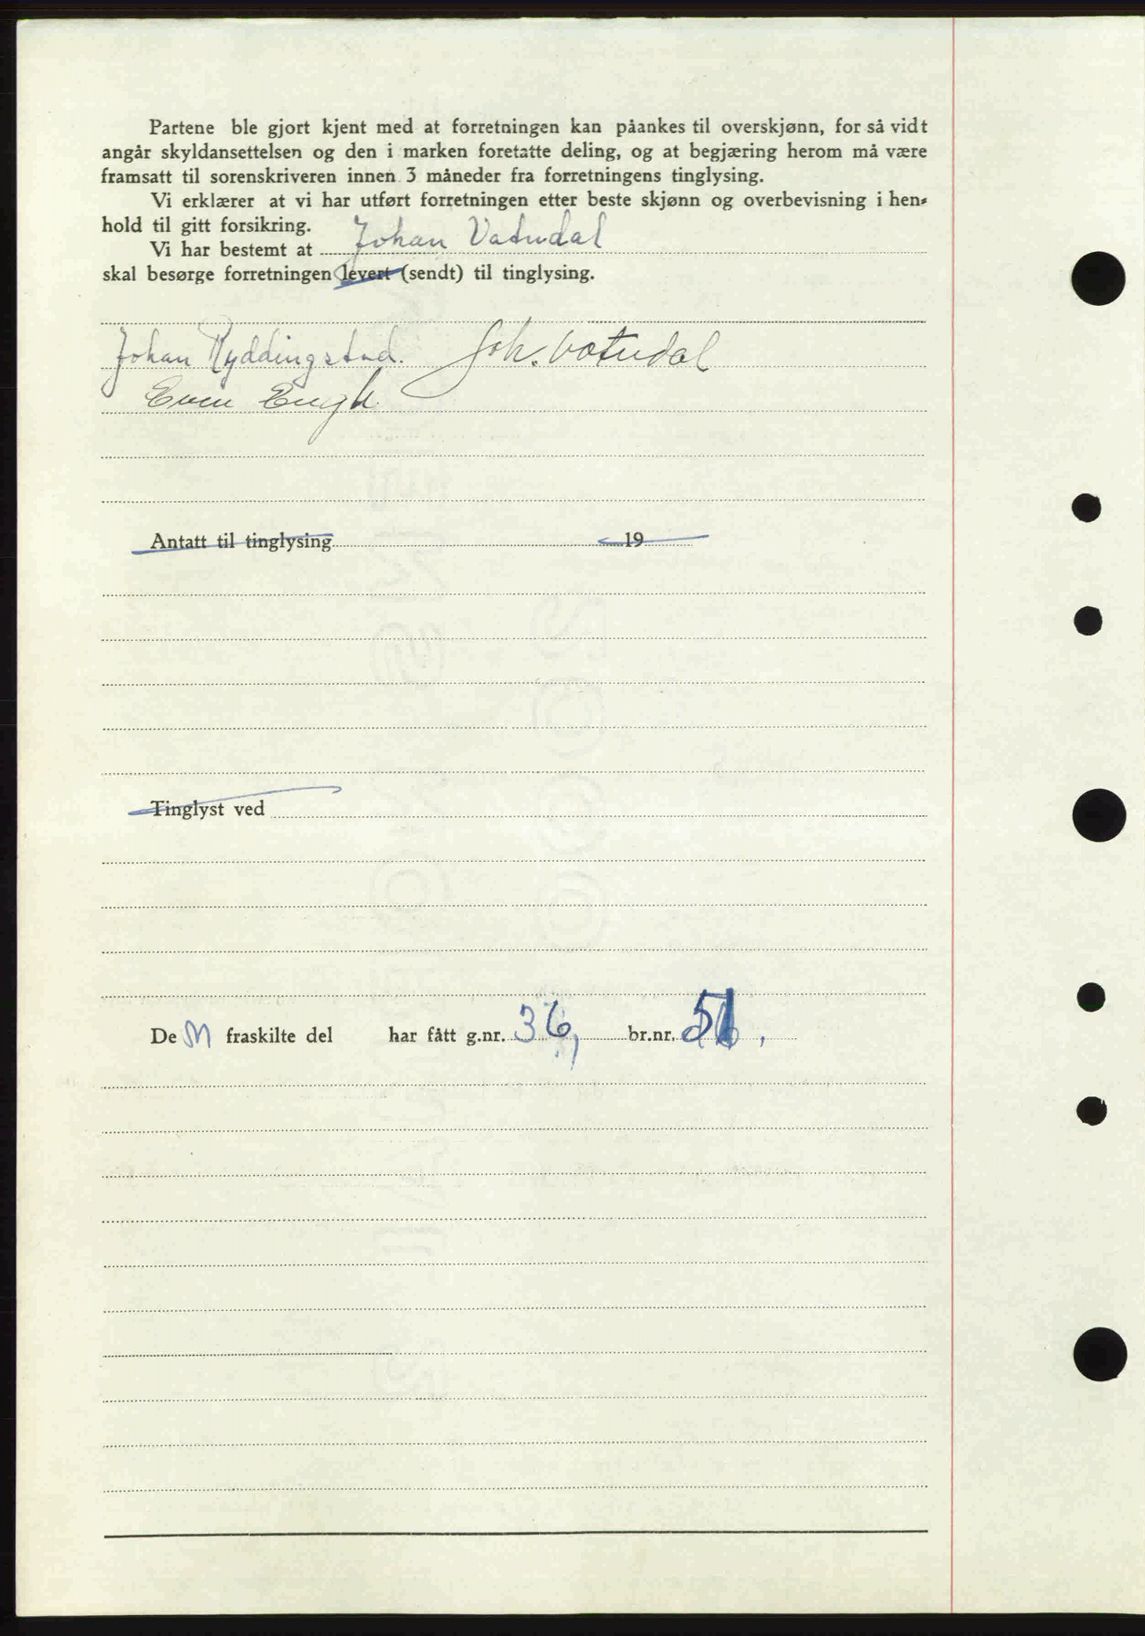 Partene ble gjort kjent med at forretningen kan påankes til overskjønn, for så vidt
angår skyldansettelsen og den i marken foretatte deling, og at begjæring herom må være
framsatt til sorenskriveren innen 3 måneder fra forretningens tinglysing.
Vi erklærer at vi har utført forretningen etter beste skjønn og overbevisning i hen-
hold til gitt forsikring.
Vi har bestemt at Johan Vatndal
skal besørge forretningen (levert (sendt) til tinglysing.
Johan Ryddingstad. Joh. Vatndal
Even Engh
Antatt til tinglysing 19
Tinglyst ved
De n fraskilte del har fått g.nr. 36, br.nr. 51,